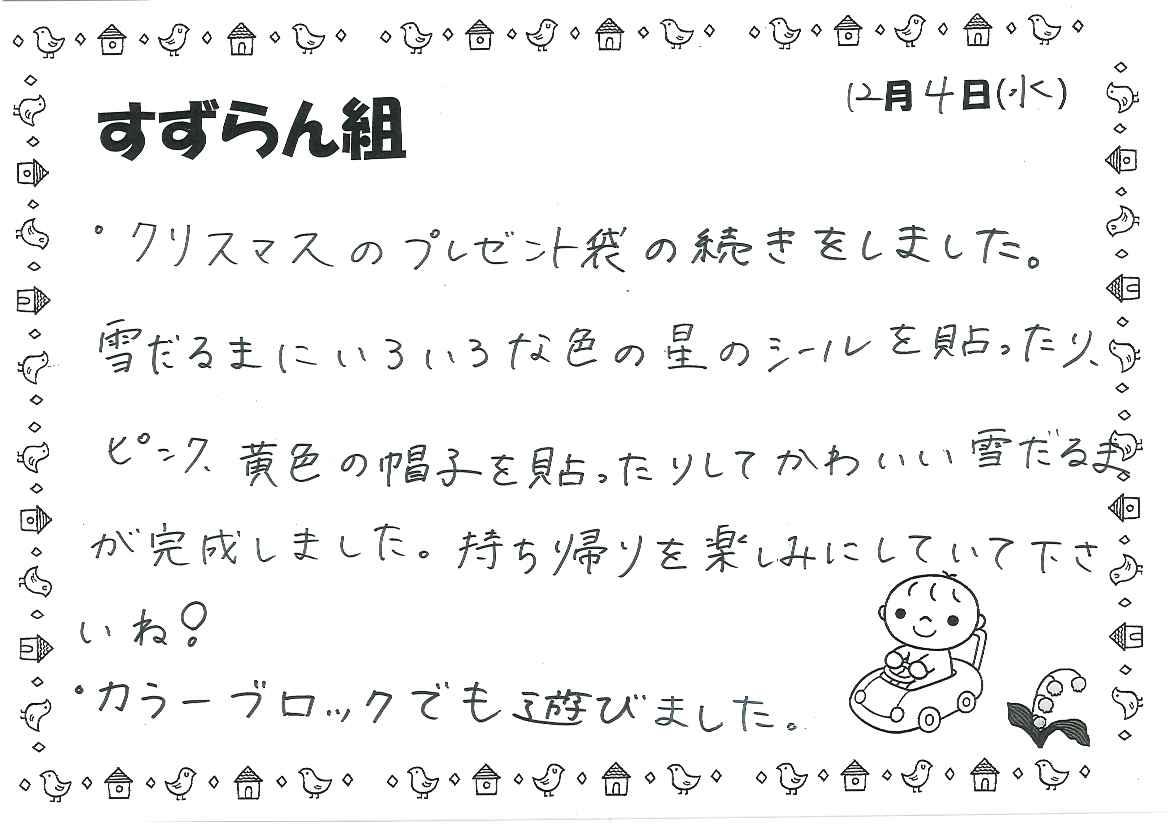 すずらん組
12月4日(水)
・クリスマスのプレゼント袋の続きをしました。
雪だるまにいろいろな色の星のシールを貼ったり、
ピンク、黄色の帽子を貼ったりしてかわいい雪だるま
が完成しました。持ち帰りを楽しみにしていて下さ
いね!
・カラーブロックでも遊びました。